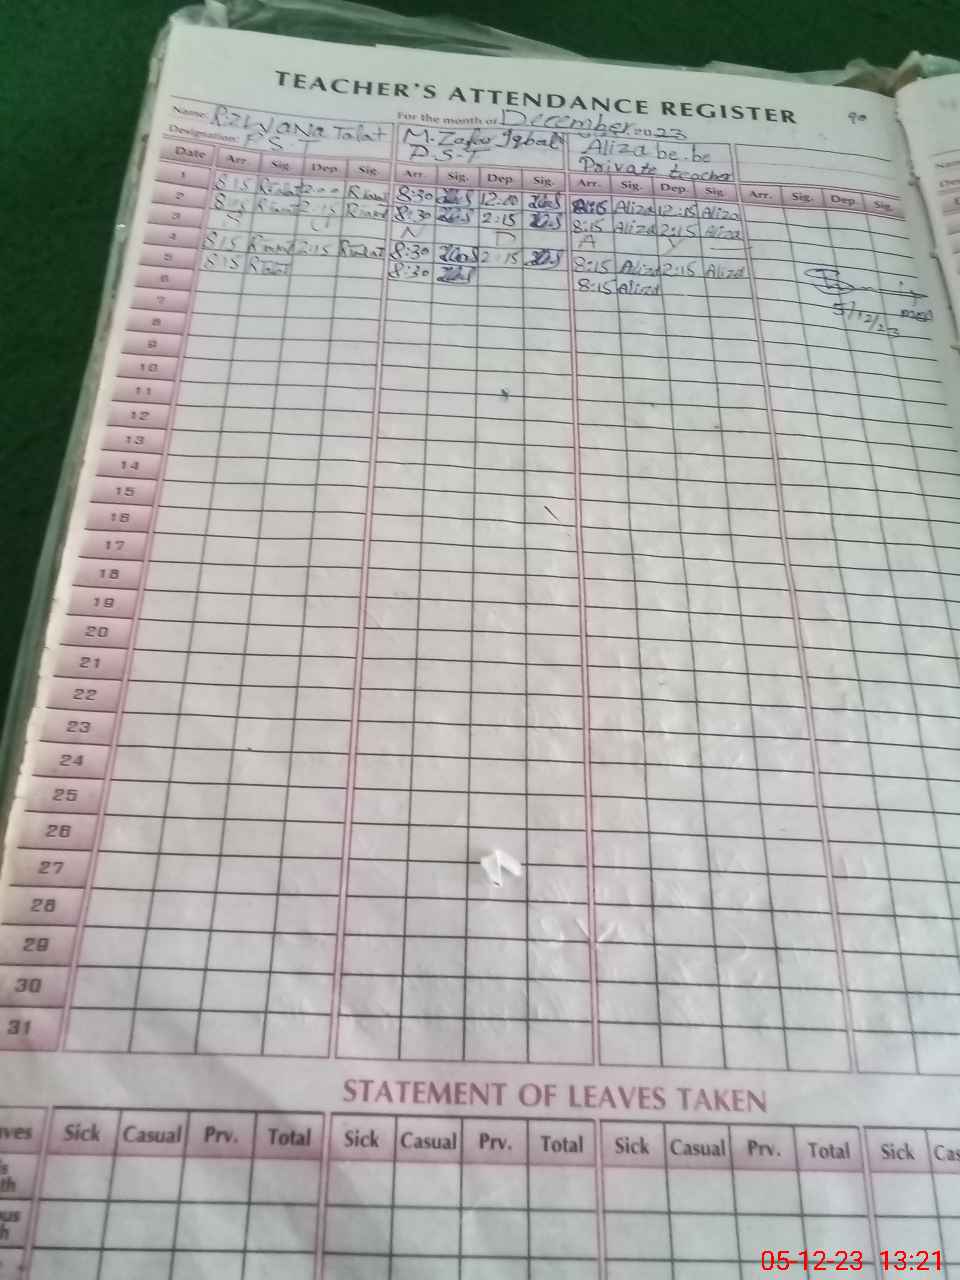 TEACHER'S ATTENDANCE REGISTER 90
Name: Rizwana Talat For the month of December 2023
M. Zafar Iqbal Aliza be.be
Designation: P.S.T P.S.T Private teacher
Date Arr. Sig. Dep. Sig. Arr. Sig. Dep. Sig. Arr. Sig. Dep. Sig. Arr. Sig. Dep. Sig.
1 8:15 R.talat 12:00 R.talat 8:30 12:00 8:15 Aliza 12:15 Aliza
2 8:15 R.talat 2:15 R.talat 8:30 2:15 8:15 Aliza 2:15 Aliza
3 S U N D A Y
4 8:15 R.talat 2:15 R.talat 8:30 2:15 8:15 Aliza 2:15 Aliza
5 8:15 R.talat 8:30 8:15 Aliza
6
5/12/23
7
8
9
10
11
12
13
14
15
16
17
18
19
20
21
22
23
24
25
26
27
28
29
30
31
STATEMENT OF LEAVES TAKEN
Sick Casual Prv. Total Sick Casual Prv. Total Sick Casual Prv. Total Sick
05-12-23 13:21